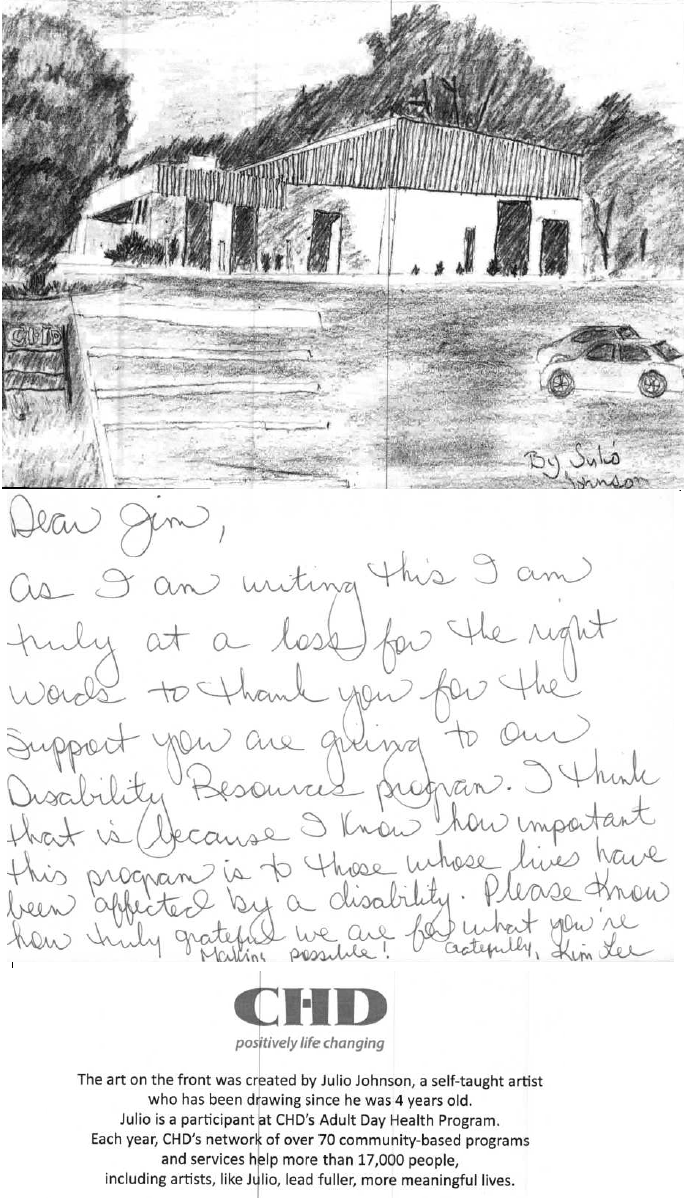 CHD
By Julio
Johnson
Dear Jim,
as I am writing this I am
truly at a loss for the right
words to thank you for the
support you are giving to our
Disability Resources program. I think
that is because I know how important
this program is to those whose lives have
been affected by a disability. Please know
how truly grateful we are for what you're
making possible! Gratefully, Kim Lee
CHD
positively life changing
The art on the front was created by Julio Johnson, a self-taught artist
who has been drawing since he was 4 years old.
Julio is a participant at CHD's Adult Day Health Program.
Each year, CHD's network of over 70 community-based programs
and services help more than 17,000 people,
including artists, like Julio, lead fuller, more meaningful lives.